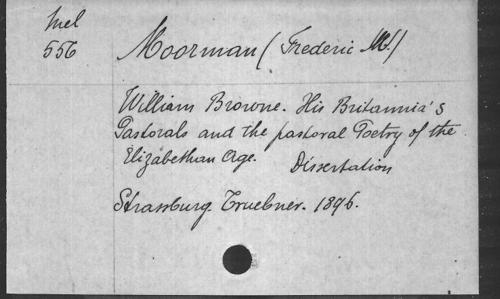 Mel
556
Moorman (Frederic W.)
William Browne. His Britannia's
Pastorals and the pastoral Poetry of the
Elizabethan Age. Dissertation
Strassburg. Truebner. 1896.